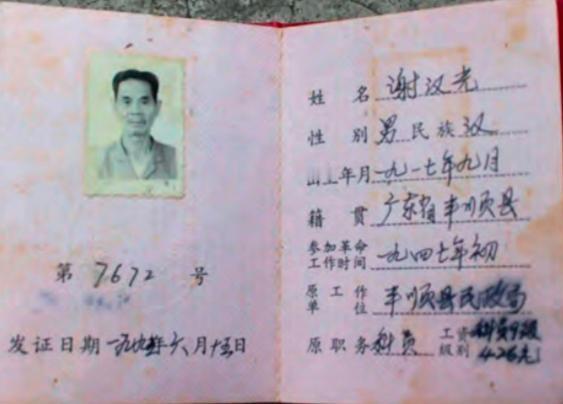 第 7672 号
发证日期 一九九 年六月十五日
姓 名 谢汉光
性 别 男 民 族 汉
年月 一九一七年九月
籍 贯 广东省丰顺县
参加革命
工作时间 一九四七年初
原 工 作
单 位 丰顺县民政局
原职务 科员 工资
级别 科员9级